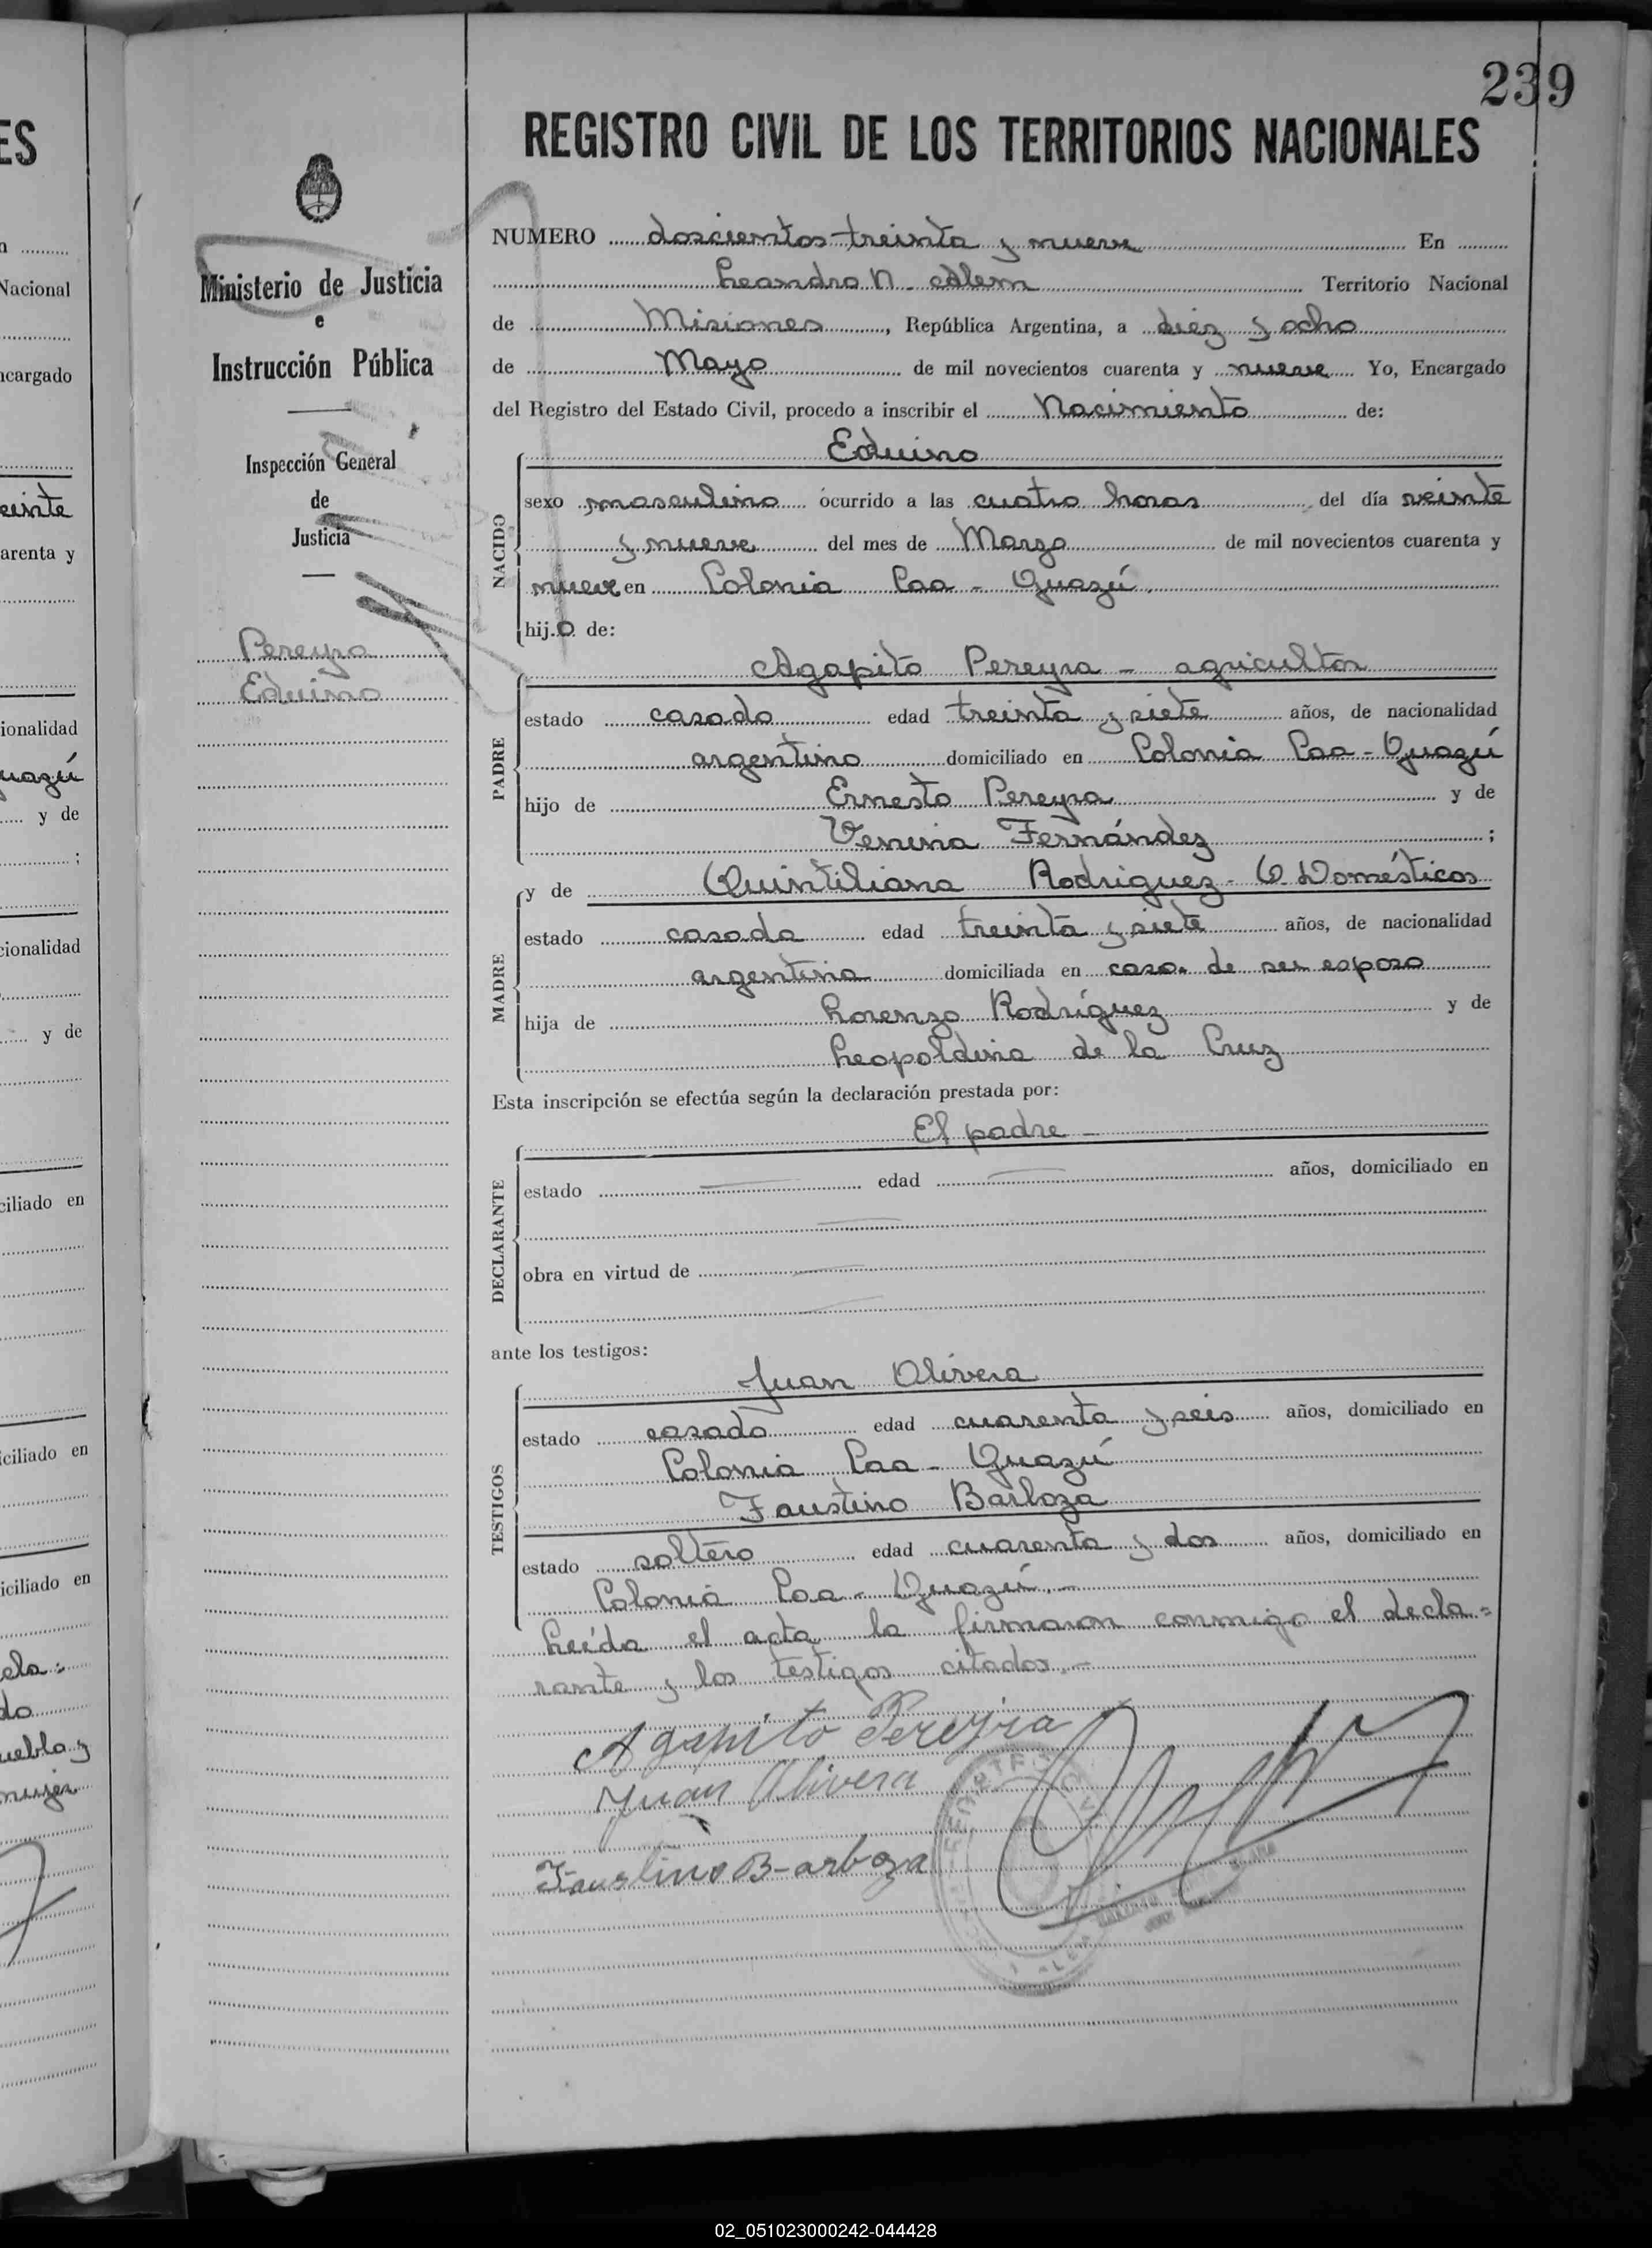 239
REGISTRO CIVIL DE LOS TERRITORIOS NACIONALES
Ministerio de Justicia
e
Instrucción Pública
Inspección General
de
Justicia
Pereyra
Eduino
NUMERO doscientos treinta y nueve En
Leandro N. Alem Territorio Nacional
de Misiones, República Argentina, a diez y ocho
de Mayo de mil novecientos cuarenta y nueve Yo, Encargado
del Registro del Estado Civil, procedo a inscribir el Nacimiento de:
NACIDO
Eduino
sexo masculino ocurrido a las cuatro horas del día veinte
y nueve del mes de Marzo de mil novecientos cuarenta y
nueve en Colonia Caa-Guazú.
hijo de:
PADRE
Agapito Pereyra - agricultor
estado casado edad treinta y siete años, de nacionalidad
argentino domiciliado en Colonia Caa-Guazú
hijo de Ernesto Pereyra y de
Fernández;
MADRE
y de Quintiliana Rodriguez - Q. Domésticos
estado casada edad treinta y siete años, de nacionalidad
argentina domiciliada en casa de su esposo
hija de Lorenzo Rodríguez y de
Leopoldina de la Cruz
Esta inscripción se efectúa según la declaración prestada por:
DECLARANTE
El padre -
estado edad años, domiciliado en
obra en virtud de
ante los testigos:
TESTIGOS
Juan Olivera
estado casado edad cuarenta y seis años, domiciliado en
Colonia Caa-Guazú
Faustino Barboza
estado soltero edad cuarenta y dos años, domiciliado en
Colonia Caa-Guazú.-
Leída el acta la firmaron conmigo el decla=
rante y los testigos citados.-
Agapito Pereyra
Juan Olivera
Faustino Barboza
02_051023000242-044428